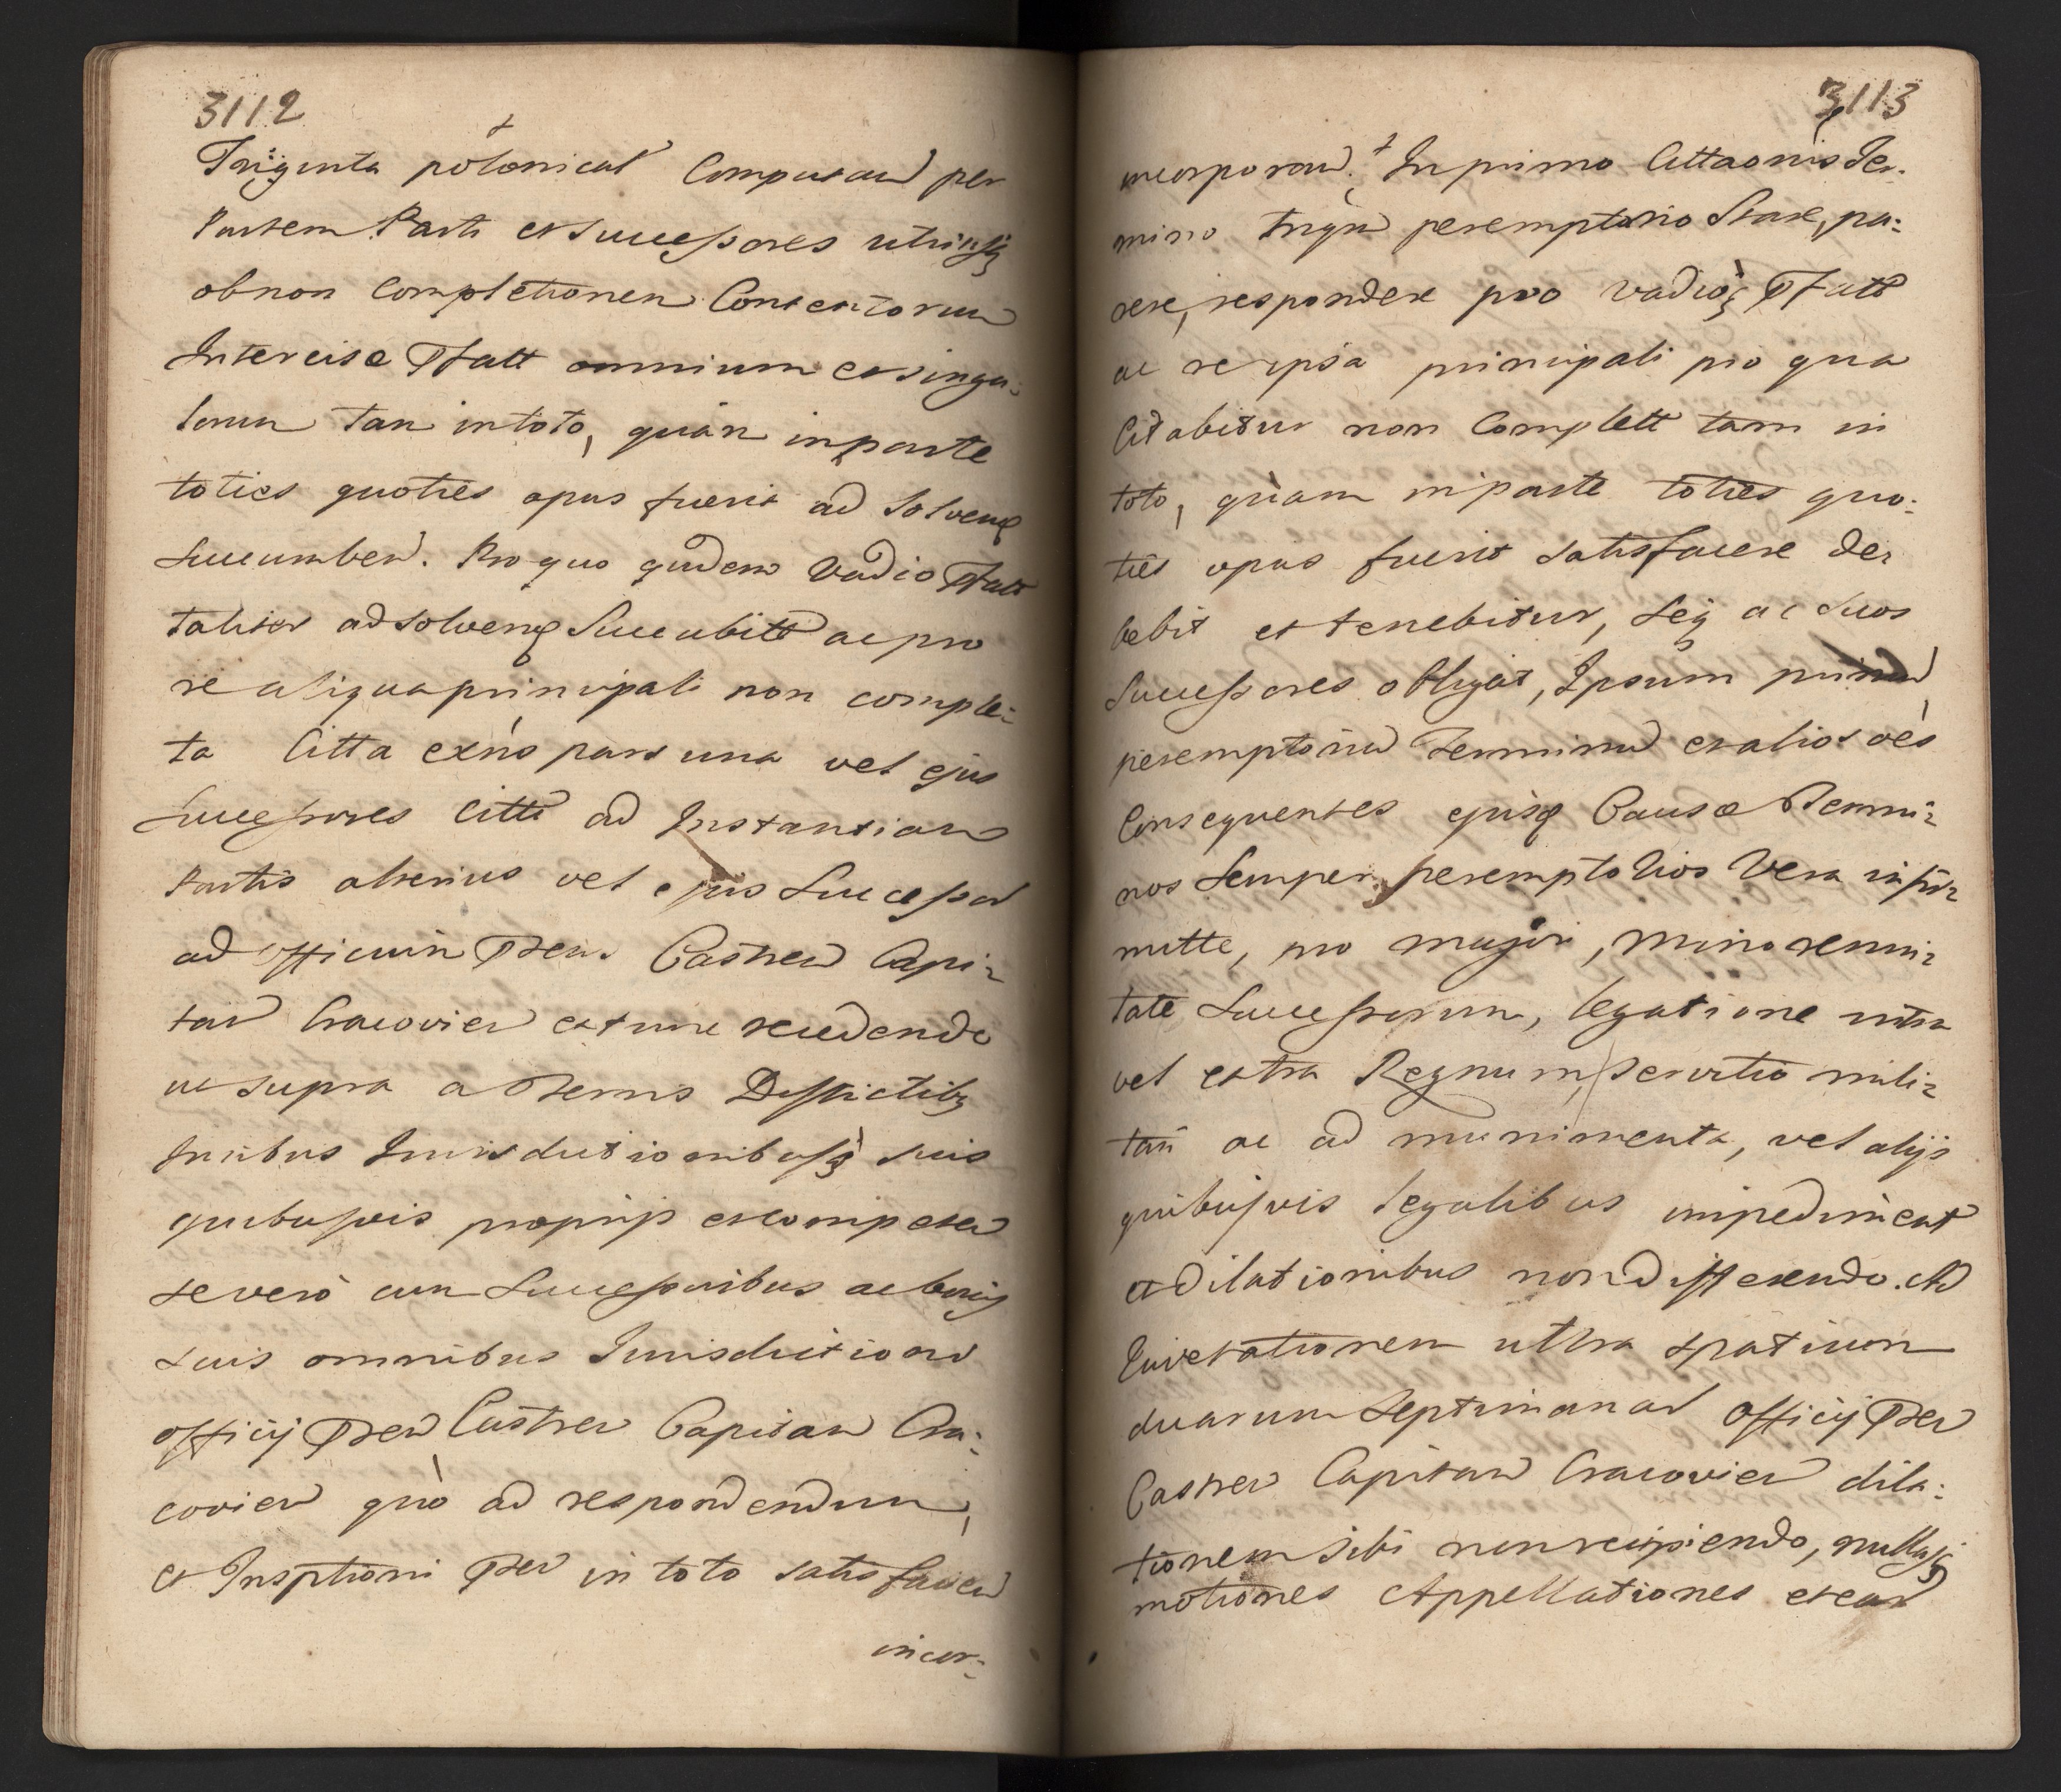 3112
Triginta polonical Computand per
Partem Parti et Successores utriusq
ob non Completionem Contentorum
Intercisae Pfatt omnium et singu-
lorum tam in toto, quàm in parte
toties quoties opus fuerit ad solvenq
Succumben. Pro quo quidem Vadio Pfatt
taliter ad solvenq Succubitt ac pro
re aliqua principali non comple-
ta Citta exńs pars una vel ejus
Successores Citti ad Instantiam
Partis alterius vel ejus Successor
ad officium Psens Castren Capi-
tan Cracovien extunc recedendo
ut supra a Terris Districtibq
Juribus Jurisdictionibusq suis
quibusvis proprijs et competen
se verò cum Successoribus ac bonis
suis omnibus Jurisdictioni
officij Psen Castren Capitan Cra-
covien quò ad respondendum,
et Inscptioni Psen in toto satisfacien
incor-
3113
incorporan. In primo Cittaonis Ter-
mino tnqm peremptorio Stare, pa-
rere, respondere pro vadioq Pfatt
ac re ipsa principali pro qua
Citabitur non Complett tam in
toto, quam in parte toties quo-
ties opus fuerit satisfacere de-
bebit et tenebitur, seq ac suos
Successores obligat, Ipsum primum
peremptorium Terminum et alios oēs
Consequentes ejusq Causae Termi-
nos Semper peremptorios Vera infir-
mitte, pro majori, minorenni-
tate Successorum, legatione intra
vel extra Regnum, servitio mili-
tari ac ad munimenta, vel alijs
quibusvis legalibus impediment
et Dilationibus non differendo. Ad
Juve​rationem ultra spatium
duarum Septimanar officij Psen
Castren Capitan Cracovien dila-
tionem sibi non recipiendo, nullasq
motiones Appellationes et ear